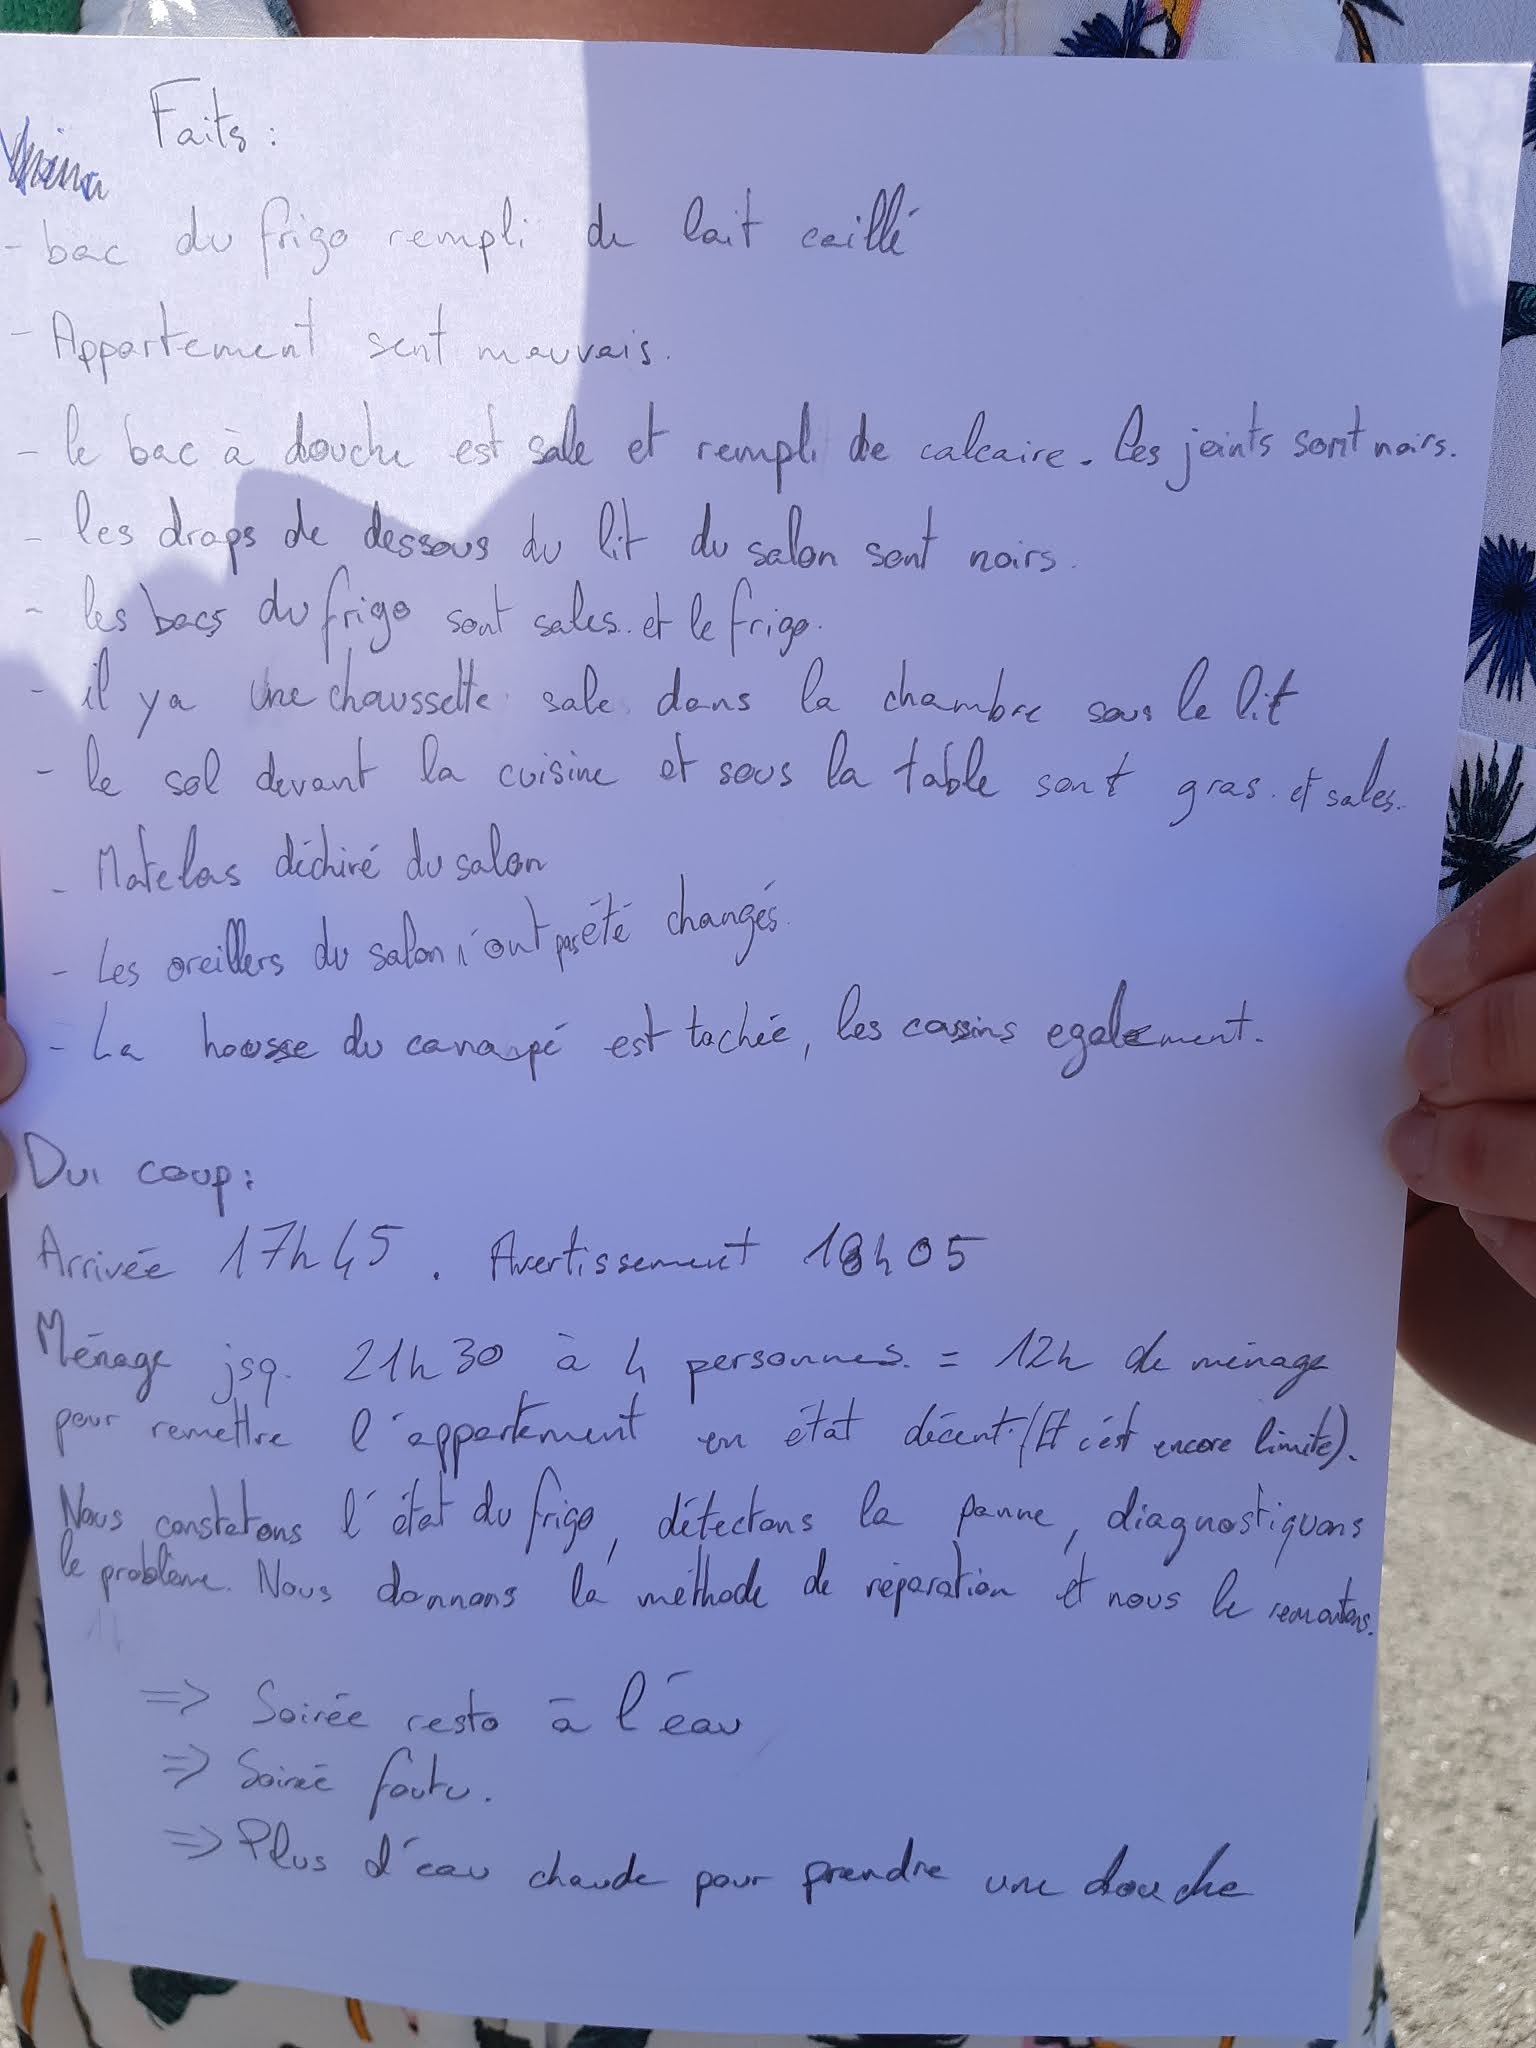 Faits :
- bac du frigo rempli de lait caillé
- Appartement sent mauvais.
- le bac à douche est sale et rempli de calcaire. Les joints sont noirs.
- les draps de dessous du lit du salon sont noirs.
- les bacs du frigo sont sales et le frigo.
- il y a une chaussette sale dans la chambre sous le lit
- le sol devant la cuisine et sous la table sont gras et sales.
- Matelas déchiré du salon
- Les oreillers du salon n'ont pas été changés.
- La housse du canapé est tachée, les coussins egalement.
Dui coup :
Arrivée 17h45. Avertissement 18h05
Ménage jsq. 21h30 à 4 personnes. = 12h de ménage
pour remettre l'appartement en état décent. (Et c'est encore limite).
Nous constatons l'état du frigo, détectons la panne, diagnostiquons
le problème. Nous donnons la méthode de réparation et nous le remontons.
=> Soirée resto à l'eau
=> Soirée foutu.
=> Plus d'eau chaude pour prendre une douche